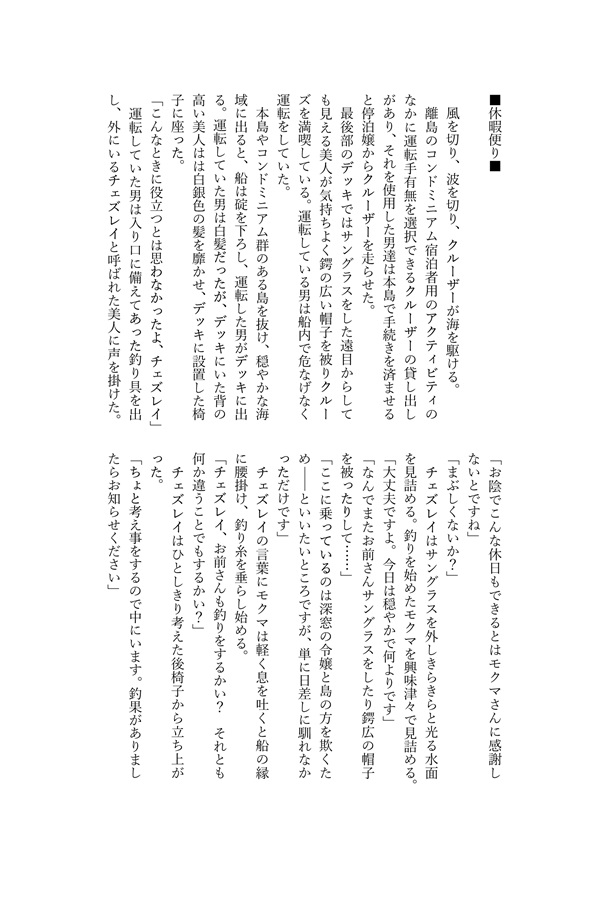 ■休暇便り■
　風を切り、波を切り、クルーザーが海を駆ける。
　離島のコンドミニアム宿泊者用のアクティビティの
なかに運転手有無を選択できるクルーザーの貸し出し
があり、それを使用した男達は本島で手続きを済ませる
と停泊嬢からクルーザーを走らせた。
　最後部のデッキではサングラスをした遠目からして
も見える美人が気持ちよく鍔の広い帽子を被りクルー
ズを満喫している。運転している男は船内で危なげなく
運転をしていた。
　本島やコンドミニアム群のある島を抜け、穏やかな海
域に出ると、船は碇を下ろし、運転した男がデッキに出
る。運転していた男は白髪だったが、デッキにいた背の
高い美人はは白銀色の髪を靡かせ、デッキに設置した椅
子に座った。
「こんなときに役立つとは思わなかったよ、チェズレイ」
　運転していた男は入り口に備えてあった釣り具を出
し、外にいるチェズレイと呼ばれた美人に声を掛けた。
「お陰でこんな休日もできるとはモクマさんに感謝し
ないとですね」
「まぶしくないか？」
　チェズレイはサングラスを外しきらきらと光る水面
を見詰める。釣りを始めたモクマを興味津々で見詰める。
「大丈夫ですよ。今日は穏やかで何よりです」
「なんでまたお前さんサングラスをしたり鍔広の帽子
を被ったりして……」
「ここに乗っているのは深窓の令嬢と島の方を欺くた
め――といいたいところですが、単に日差しに馴れなか
っただけです」
　チェズレイの言葉にモクマは軽く息を吐くと船の縁
に腰掛け、釣り糸を垂らし始める。
「チェズレイ、お前さんも釣りをするかい？　それとも
何か違うことでもするかい？」
　チェズレイはひとしきり考えた後椅子から立ち上が
った。
「ちょと考え事をするので中にいます。釣果がありまし
たらお知らせください」